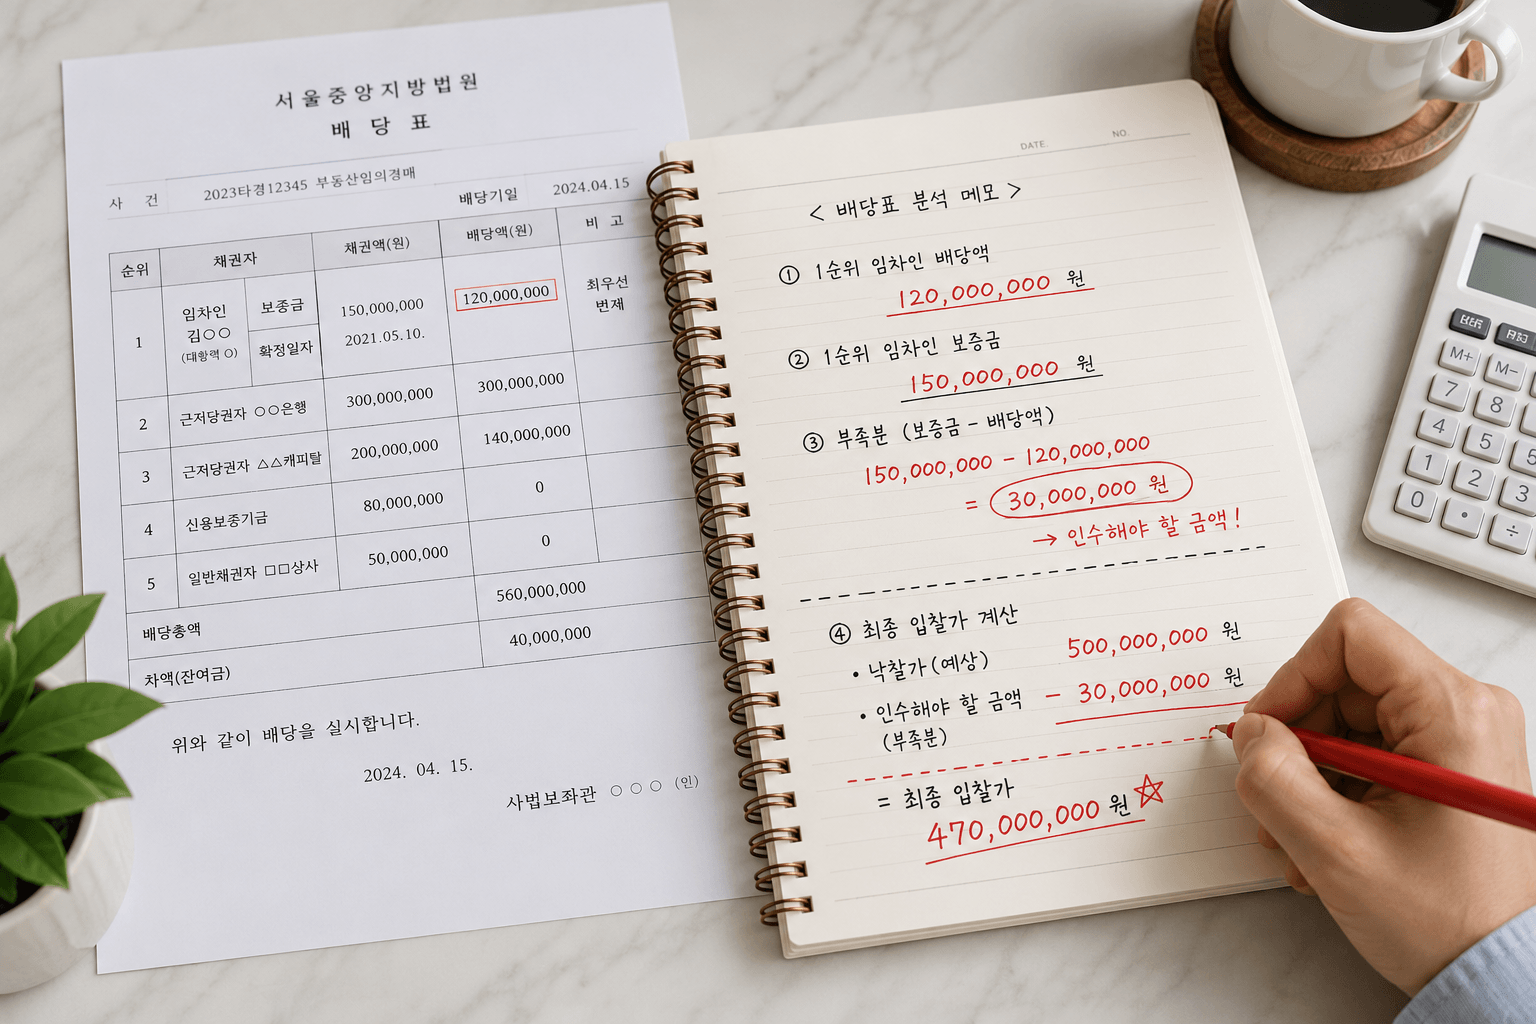 서울중앙지방법원
배 당 표
사 건 2023타경12345 부동산임의경매 배당기일 2024.04.15
순위 채권자 채권액(원) 배당액(원) 비 고
1 임차인 김○○ (대항력 O) 보증금 150,000,000 120,000,000 최우선 변제
확정일자 2021.05.10.
2 근저당권자 ○○은행 300,000,000 300,000,000
3 근저당권자 △△캐피탈 200,000,000 140,000,000
4 신용보증기금 80,000,000 0
5 일반채권자 □□상사 50,000,000 0
배당총액 560,000,000
차액(잔여금) 40,000,000
위와 같이 배당을 실시합니다.
2024. 04. 15.
사법보좌관 ○ ○ ○ (인)
DATE. NO.
< 배당표 분석 메모 >
① 1순위 임차인 배당액
120,000,000 원
② 1순위 임차인 보증금
150,000,000 원
③ 부족분 (보증금 - 배당액)
150,000,000 - 120,000,000
= 30,000,000 원
→ 인수해야 할 금액!
④ 최종 입찰가 계산
• 낙찰가(예상) 500,000,000 원
• 인수해야 할 금액 - 30,000,000 원
(부족분)
= 최종 입찰가
470,000,000 원 ☆
M+ M-
7 8
4 5
1 2 3
0 • ÷